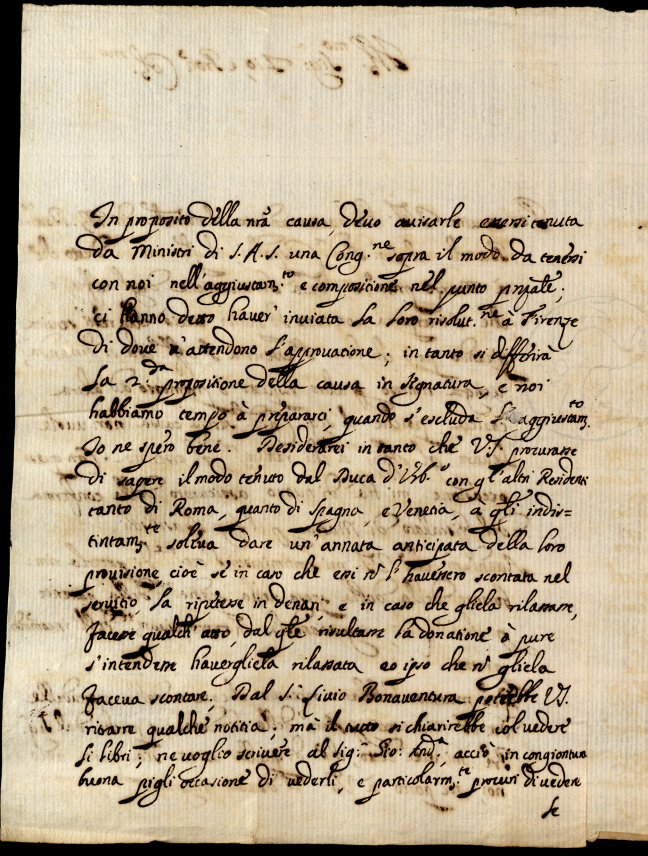 In proposito della nrã causa, devo avisarle essersi tenuta
da Ministri di S. A. S. una Cong.ne sopra il modo da tenersi
con noi nell'aggiustam.to e compositione nel punto prĩale;
ci hanno detto haver' inviata la loro risolut.ne à Firenze
di dove n'attendono l'approvatione; in tanto si differirà
la 2.da propositione della causa in signatura, e noi
habbiamo tempo à prepararci, quando s'escluda l'aggiustam.to
Io ne spero bene. Desidererei in tanto che V.S. procurasse
di sapere il modo tenuto dal Duca d'Urb.o con gl'altri Residenti
tanto di Roma, quanto di Spagna, e Venetia, à gli indis=
tintam.te soleva dare un'annata anticipata della loro
provisione, cioè se in caso che essi nõ l'havessero scontata nel
servitio, la ripetesse in denari, e in caso che gliela rilassasse,
facesse qualch'atto, dal qle risultasse la donatione ò pure
s'intendesse havergliela rilassata eo ipso che nõ gliela
faceva scontare. Dal S.r Livio Bonaventura potrebbe V.S.
ritrarre qualche notitia; mà il tutto si chiarirebbe col vedere
li libri; ne voglio scrivere al Sig.r Gio: And.a, acciò in congiontura
buona pigli occasione di vederli, e particolarm.te procuri di vedere
se